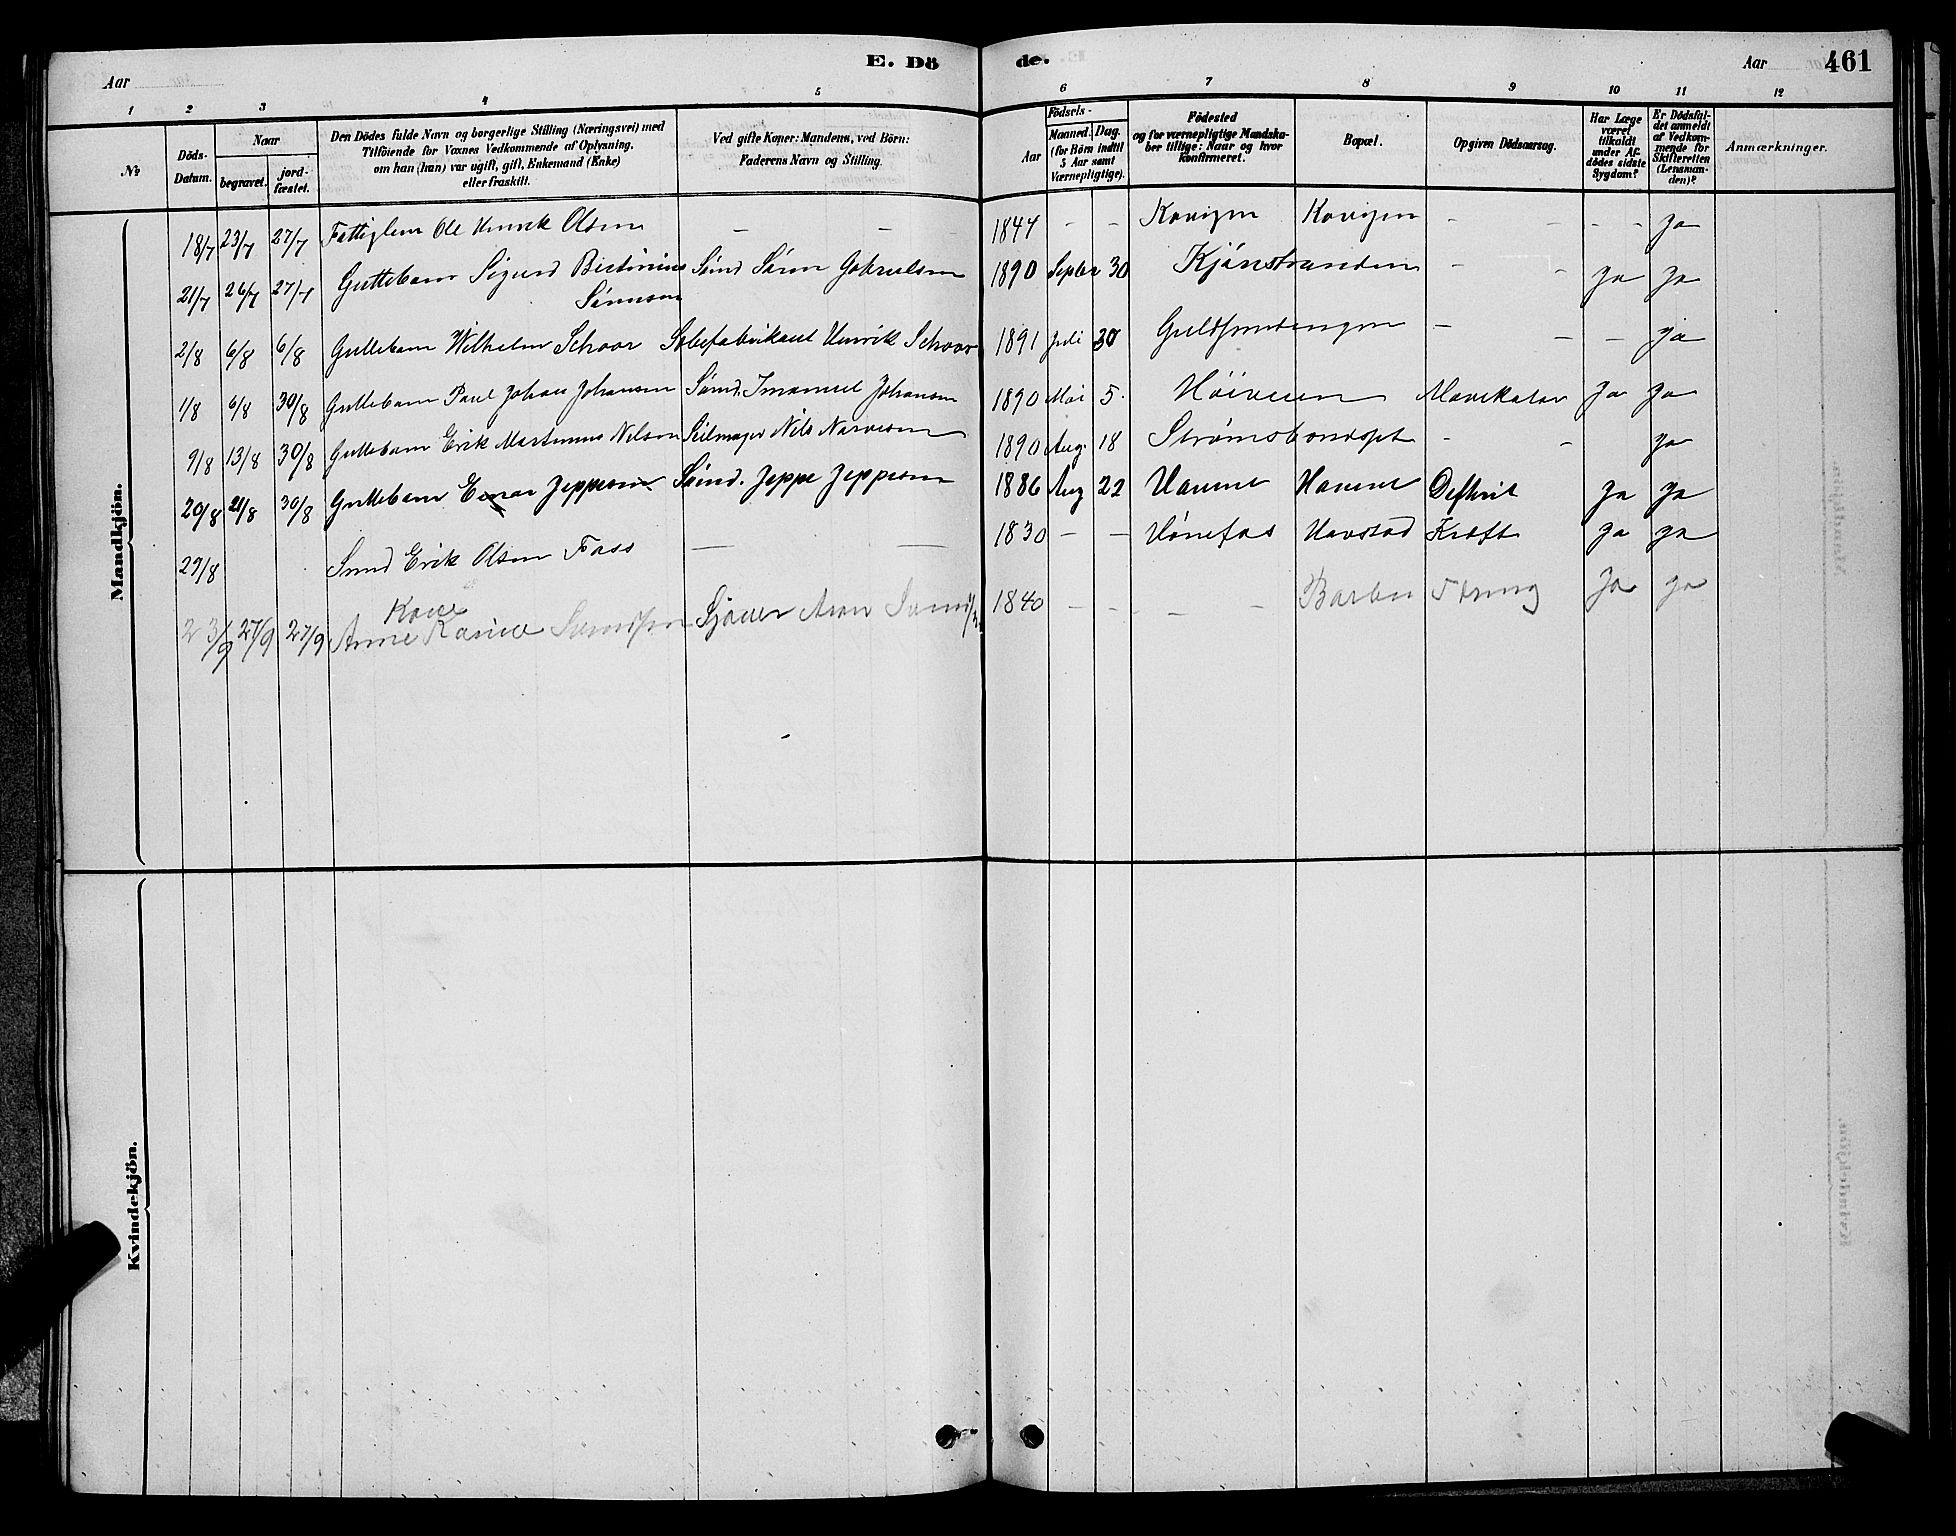 Aar
E. Dö
de.
Aar
461
1 2 3 4 5 6 7 8 9 10 11 12
№
Döds-Datum.
Naar
begravet.
jord-fæstet.
Den Dödes fulde Navn og borgerlige Stilling (Næringsvei) med
Tilföiende for Voxnes Vedkommende af Oplysning,
om han (hun) var ugift, gift, Enkemand (Enke)
eller fraskilt.
Ved gifte Koner: Mandens, ved Börn:
Faderens Navn og Stilling.
Aar
Födsels-
Maaned. Dag.
(for Börn indtil
5 Aar samt
Værnepligtige).
Födested
og for værnepligtige Mandska-
ber tillige: Naar og hvor
konfirmeret.
Bopæl.
Opgiven Dödsaarsag.
Har Læge
været
tilkaldt
under Af-
dödes sidste
Sygdom?
Er Dödsfal-
det anmeldt
af Vedkom-
mende for
Skifteretten
(Lensman-
den)?
Anmærkninger.
Mandkjön.
18/7 23/7 27/7 Fattiglem Ole Henrik Olsen — — 1847 - - Kovigen Kovigen - - - - ja
21/7 26/7 27/7 Guttebarn Sigurd Bertinius Sömd Sören Gabrielsen 1890 Septbr 30 Kjönstranden - - ja ja
Sörensen
2/8 6/8 6/8 Guttebarn Wilhelm Schaar Henrik Schaar 1891 Juli 30 - - - ja
1/8 6/8 30/8 Guttebarn Paul Johan Johansen Sömd. Imanuel Johansen 1890 Mai 5. Höiveien Mavekatar ja ja
9/8 13/8 30/8 Guttebarn Erik Martinius Nilsen Seilmager Nils 1890 Aug. 18 Strømsbo - - ja
20/8 21/8 30/8 Guttebarn Einar Jeppesen Sömd. Jeppe Jeppesen 1886 Aug 22 Havene Havene Difterit ja ja
29/8 Sømd Erik Olsen Foss — — 1830 - - Hönefos Havstad Kræft ja ja
Kone
23/9 27/9 27/9 Anne Sjömd Aron 1840 - - - - Barbu Tæring ja ja
Kvindekjön.